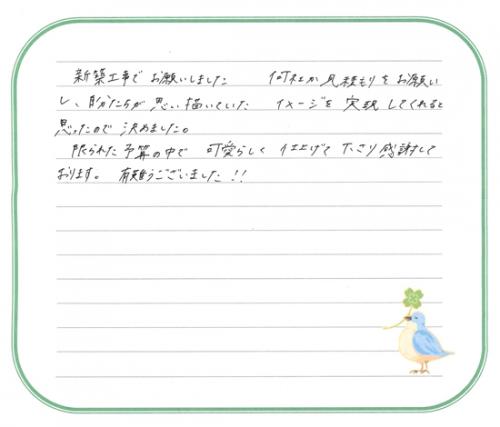 新築工事で お願いしました 何社か見積もりをお願い
し、自分たちが 思い描いていた イメージを 実現してくれると
思ったので 決めました。
限られた予算の中で 可愛らしく 仕上げて下さり感謝して
おります。 有難うございました!!